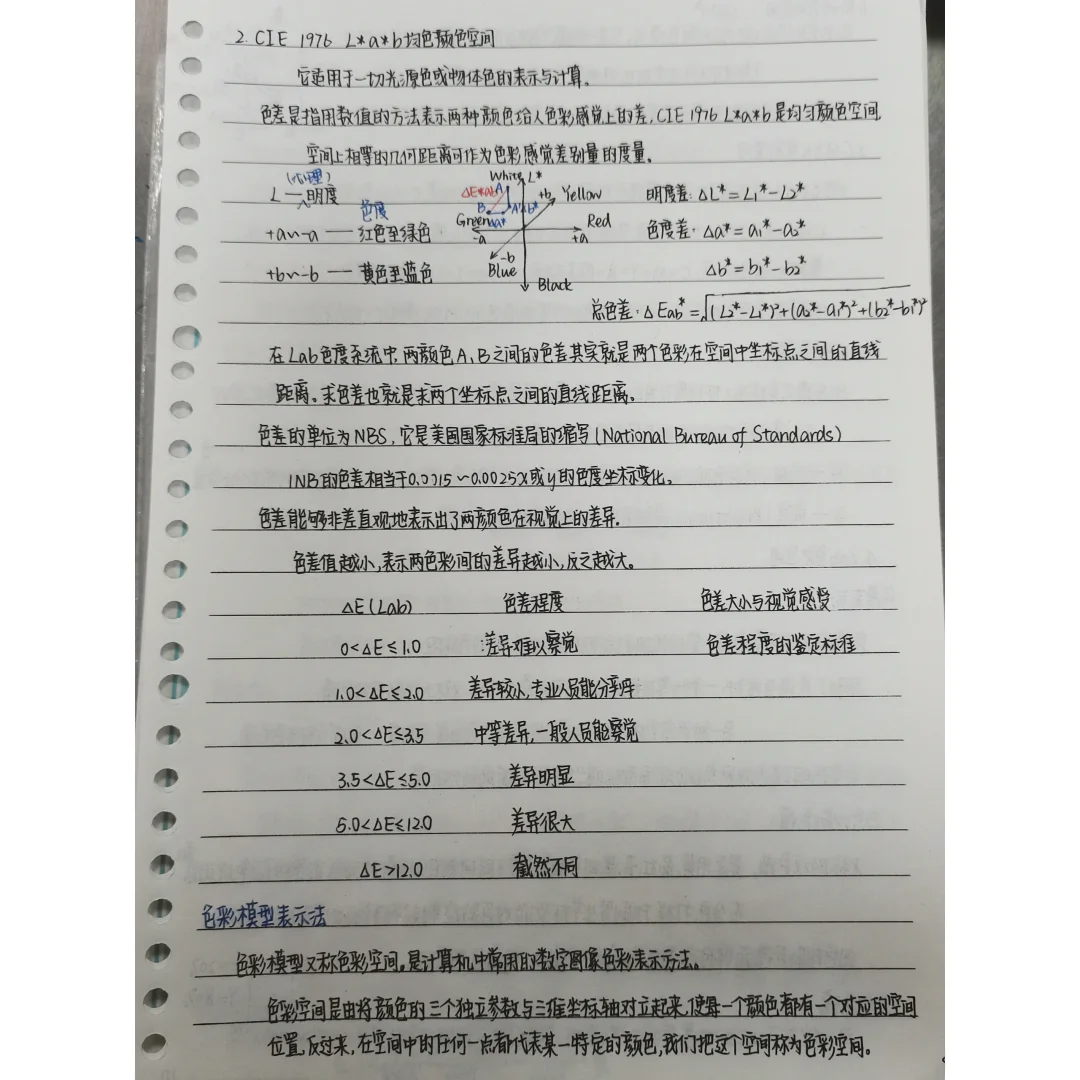 2. CIE 1976 L*a*b均色颜色空间
它适用于一切光源色或物体色的表示与计算。
色差是指用数值的方法表示两种颜色给人色彩感觉上的差,CIE 1976 L*a*b是均匀颜色空间,
空间上相等的几何距离可作为色彩感觉差别量的度量。
(心理)
L — 明度
色度
+a~-a — 红色至绿色
+b~-b — 黄色至蓝色
White L*
ΔE*ab A
+b Yellow
B A' Δb*
Green Δa* Red
-a +a
-b
Blue
Black
明度差: ΔL*=L1*-L2*
色度差: Δa*=a1*-a2*
Δb*=b1*-b2*
总色差: ΔEab*=√(L2*-L1*)²+(a2*-a1*)²+(b2*-b1*)²
在Lab色度系统中,两颜色A、B之间的色差其实就是两个色彩在空间中坐标点之间的直线
距离。求色差也就是求两个坐标点之间的直线距离。
色差的单位为NBS,它是美国国家标准局的缩写(National Bureau of Standards)
1NB的色差相当于0.0015~0.0025x或y的色度坐标变化。
色差能够非差直观地表示出了两颜色在视觉上的差异.
色差值越小,表示两色彩间的差异越小,反之越大。
ΔE(Lab) 色差程度 色差大小与视觉感受
0<ΔE≤1.0 差异难以察觉 色差程度的鉴定标准
1.0<ΔE≤2.0 差异较小,专业人员能分辨
2.0<ΔE≤3.5 中等差异,一般人员能察觉
3.5<ΔE≤5.0 差异明显
5.0<ΔE≤12.0 差异很大
ΔE>12.0 截然不同
色彩模型表示法
色彩模型又称色彩空间。是计算机中常用的数字图像色彩表示方法。
色彩空间是由将颜色的三个独立参数与三维坐标轴对立起来,使每一个颜色都有一个对应的空间
位置,反过来,在空间中的任何一点都代表某一特定的颜色,我们把这个空间称为色彩空间。